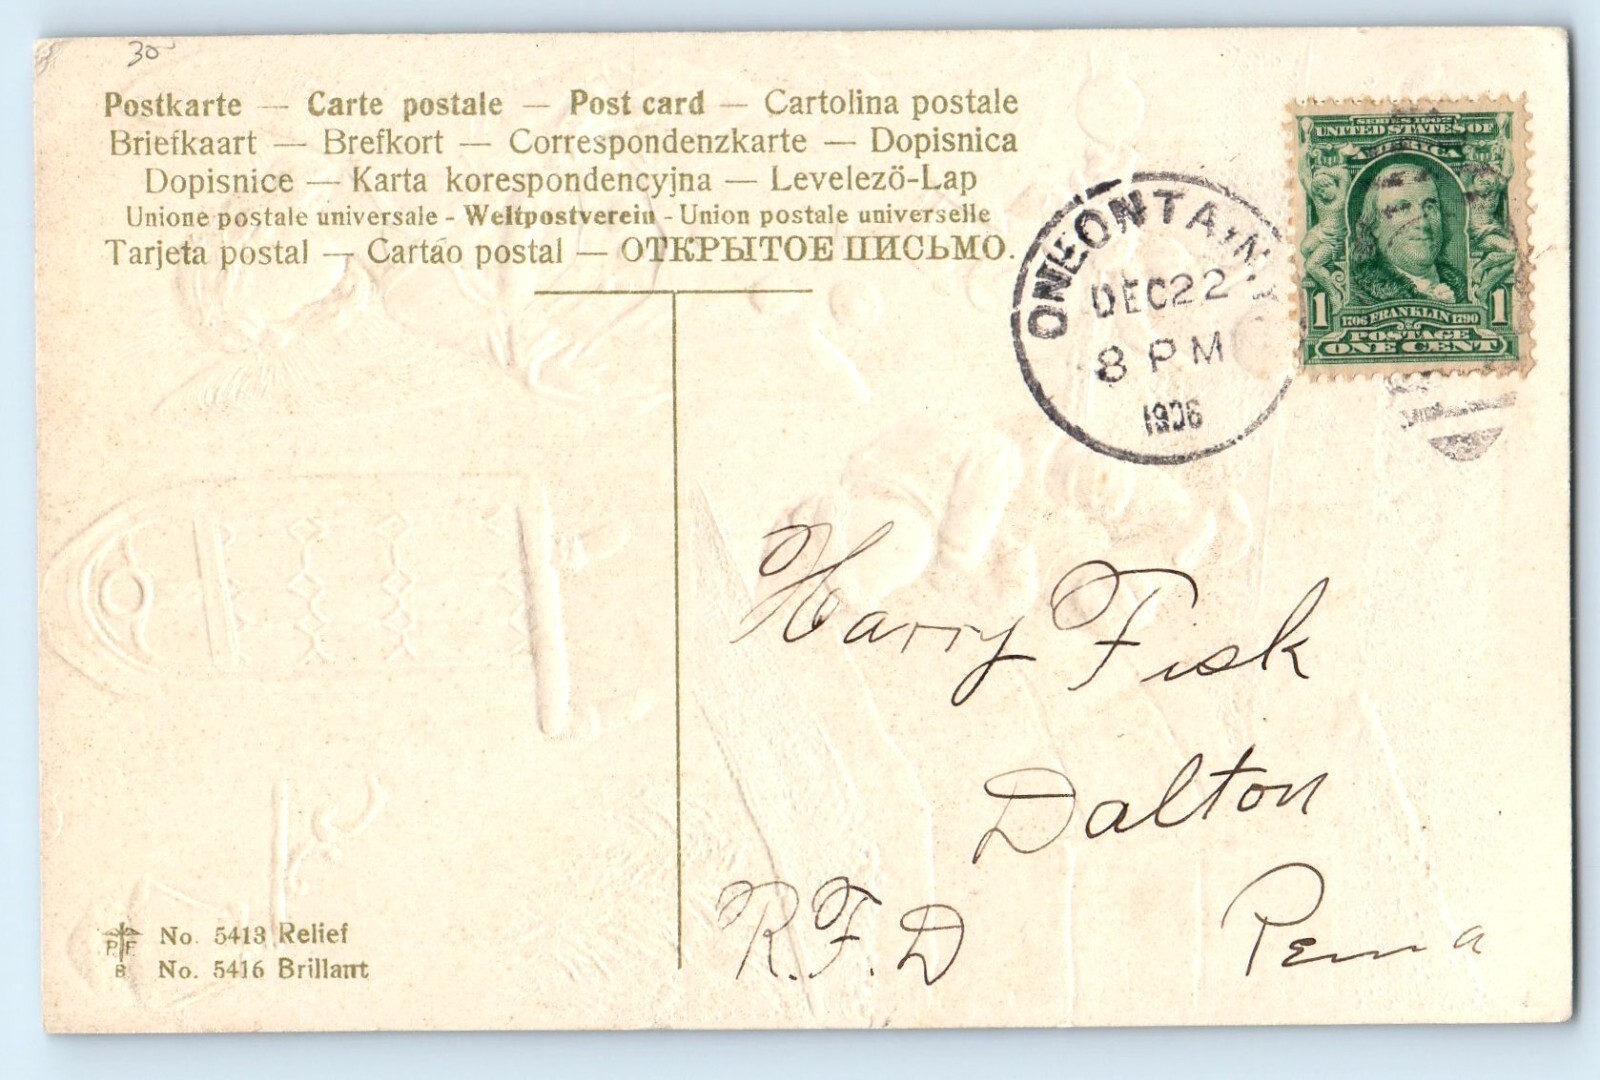 30
Postkarte — Carte postale — Post card — Cartolina postale
Briefkaart — Brefkort — Correspondenzkarte — Dopisnica
Dopisnice — Karta korespondencyjna — Levelező-Lap
Unione postale universale - Weltpostverein - Union postale universelle
Tarjeta postal — Cartão postal — ОТКРЫТОЕ ПИСЬМО.
SERIES 1902
UNITED STATES OF
AMERICA
1 1706 FRANKLIN 1790 1
POSTAGE
ONE CENT
ONEONTA, N.Y.
DEC 22
8 PM
1906
Harry Fisk
Dalton
R.F.D Penna
PF
B
No. 5413 Relief
No. 5416 Brillant